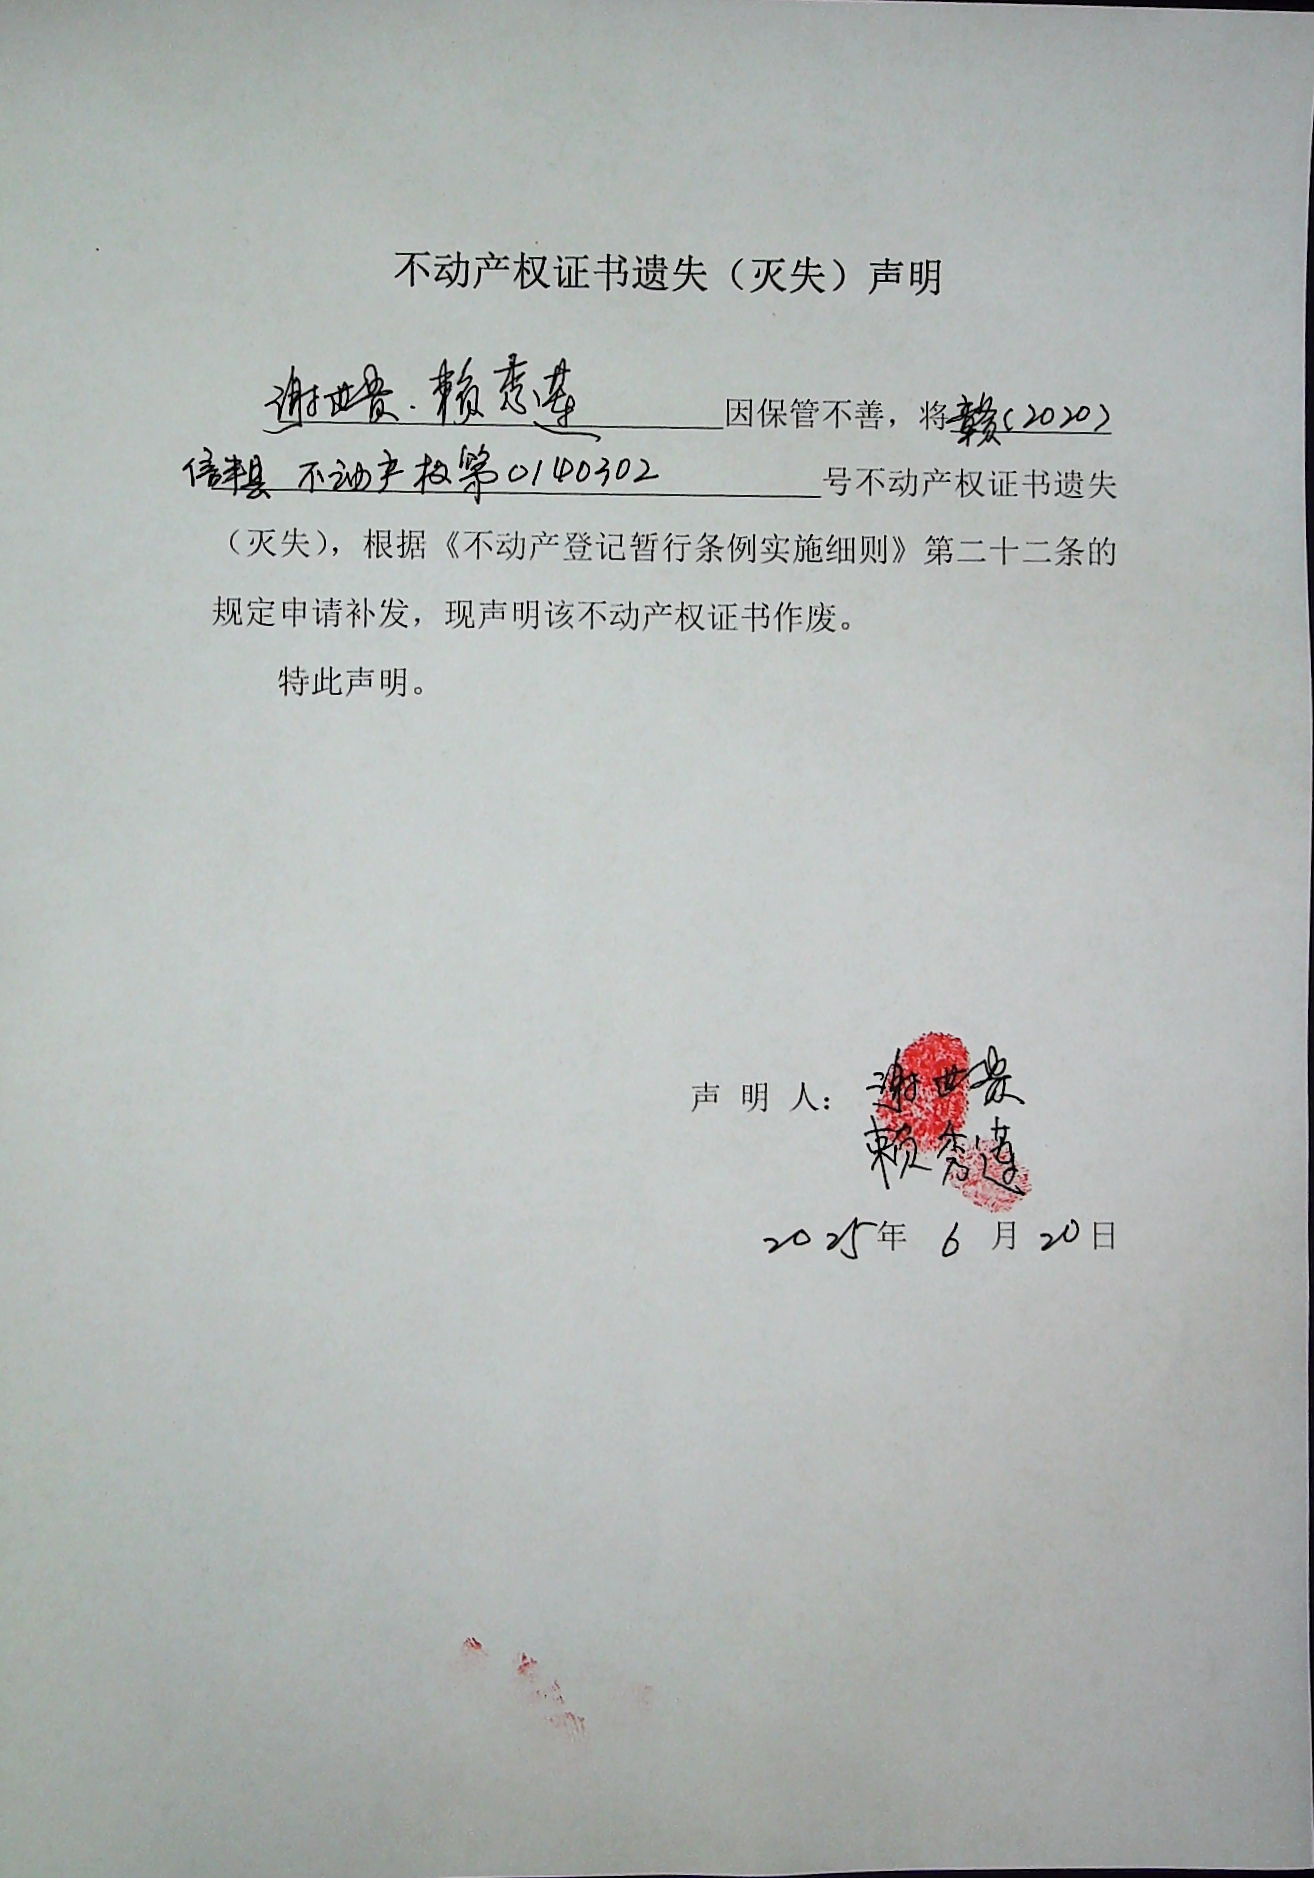 不动产权证书遗失（灭失）声明
谢世贵．赖秀莲因保管不善，将赣（2020）
信丰县不动产权第0140302号不动产权证书遗失
（灭失），根据《不动产登记暂行条例实施细则》第二十二条的
规定申请补发，现声明该不动产权证书作废。
特此声明。
声明人：谢世贵
赖秀莲
2025年6月20日